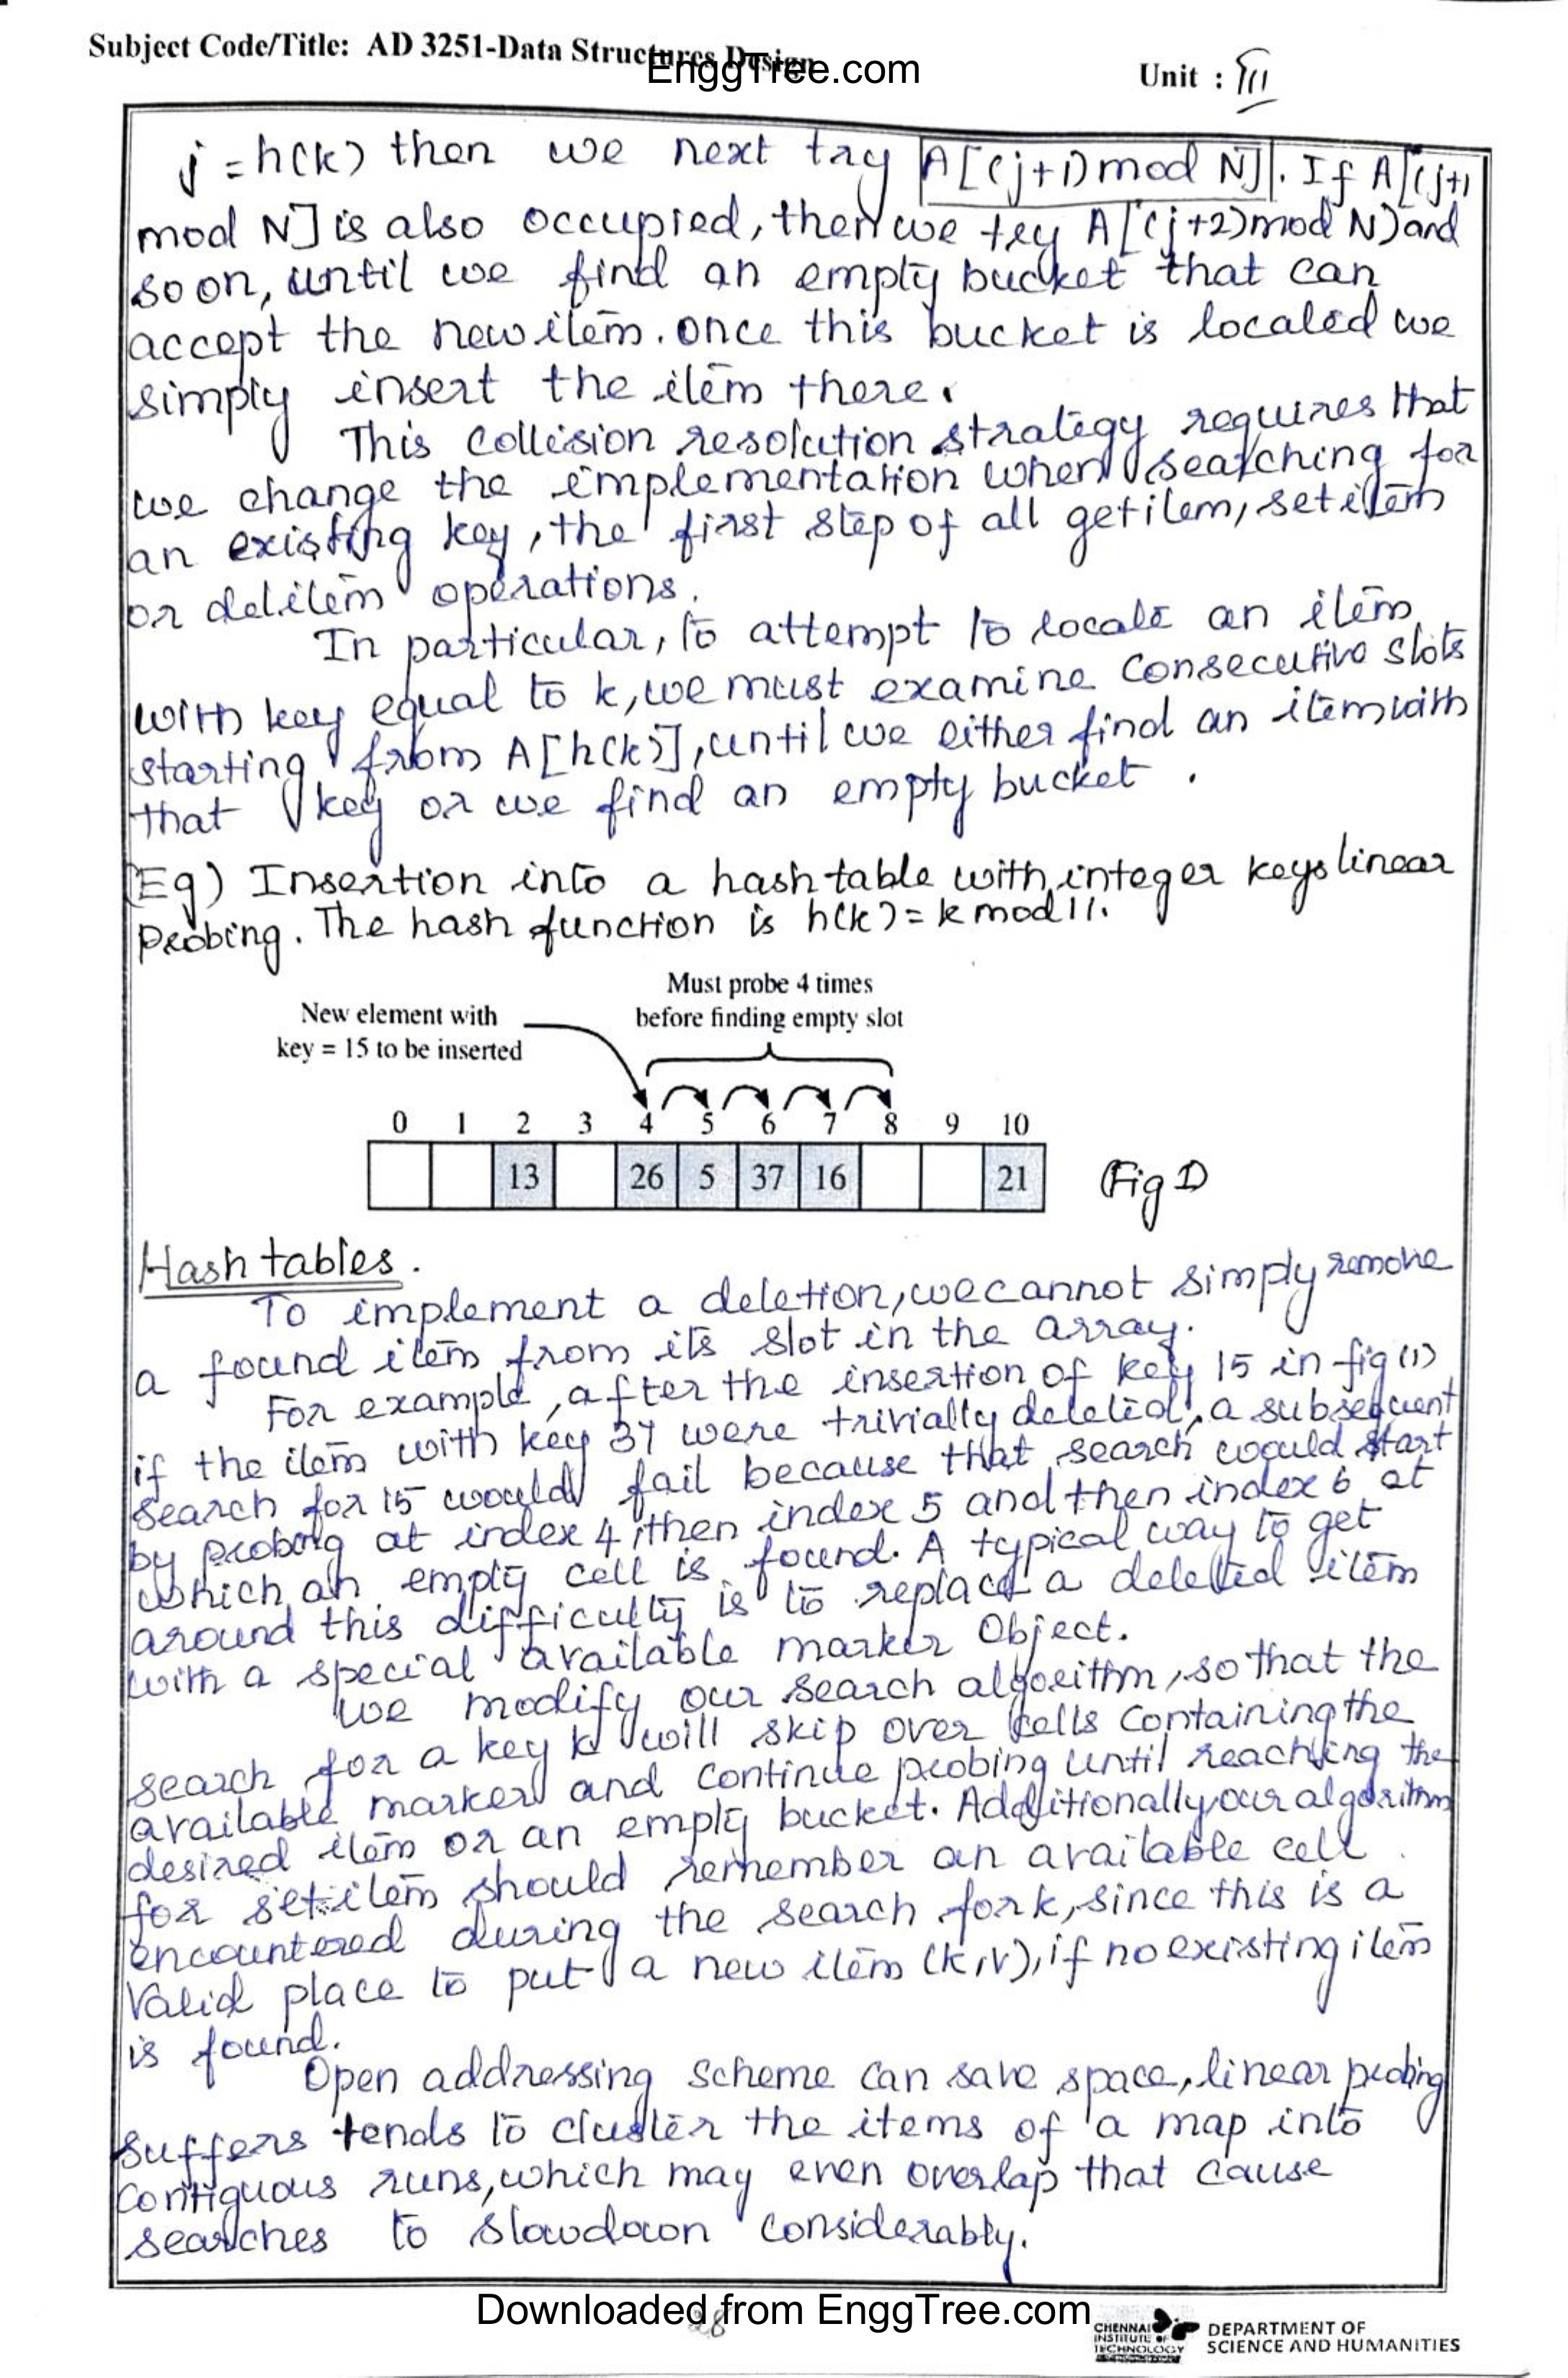 Subject Code/Title: AD 3251-Data Structures Design
EnggTree.com
Unit : III
j = h(k) then we next try A[(j+1) mod N]. If A[(j+1
mod N] is also occupied, then we try A[(j+2) mod N) and
so on, until we find an empty bucket that can
accept the new item. once this bucket is located we
simply insert the item there.
This collision resolution strategy requires that
we change the implementation when searching for
an existing key, the first step of all getitem, setitem
or delitem operations.
In particular, to attempt to locate an item
with key equal to k, we must examine consecutive slots
starting from A[h(k)], until we either find an item with
that key or we find an empty bucket.
(Eg) Insertion into a hash table with integer keys linear
Probing. The hash function is h(k) = k mod 11.
Must probe 4 times
before finding empty slot
New element with
key = 15 to be inserted
0 1 2 3 4 5 6 7 8 9 10
13 26 5 37 16 21
(Fig 1)
Hash tables.
To implement a deletion, we cannot simply remove
a found item from its slot in the array.
For example, after the insertion of key 15 in fig (1)
if the item with key 37 were trivially deleted, a subsequent
search for 15 would fail because that search would start
by probing at index 4, then index 5 and then index 6 at
which an empty cell is found. A typical way to get
around this difficulty is to replace a deleted item
with a special available marker Object.
We modify our search algorithm, so that the
search for a key k will skip over cells containing the
available marker and continue probing until reaching the
desired item or an empty bucket. Additionally, our algorithm
for setitem should remember an available cell
encountered during the search for k, since this is a
Valid place to put a new item (k,v), if no existing item
is found.
Open addressing scheme can save space, linear probing
suffers tends to cluster the items of a map into
contiguous runs, which may even overlap that cause
searches to slowdown considerably.
28
Downloaded from EnggTree.com
CHENNAI
INSTITUTE OF
TECHNOLOGY
DEPARTMENT OF
SCIENCE AND HUMANITIES